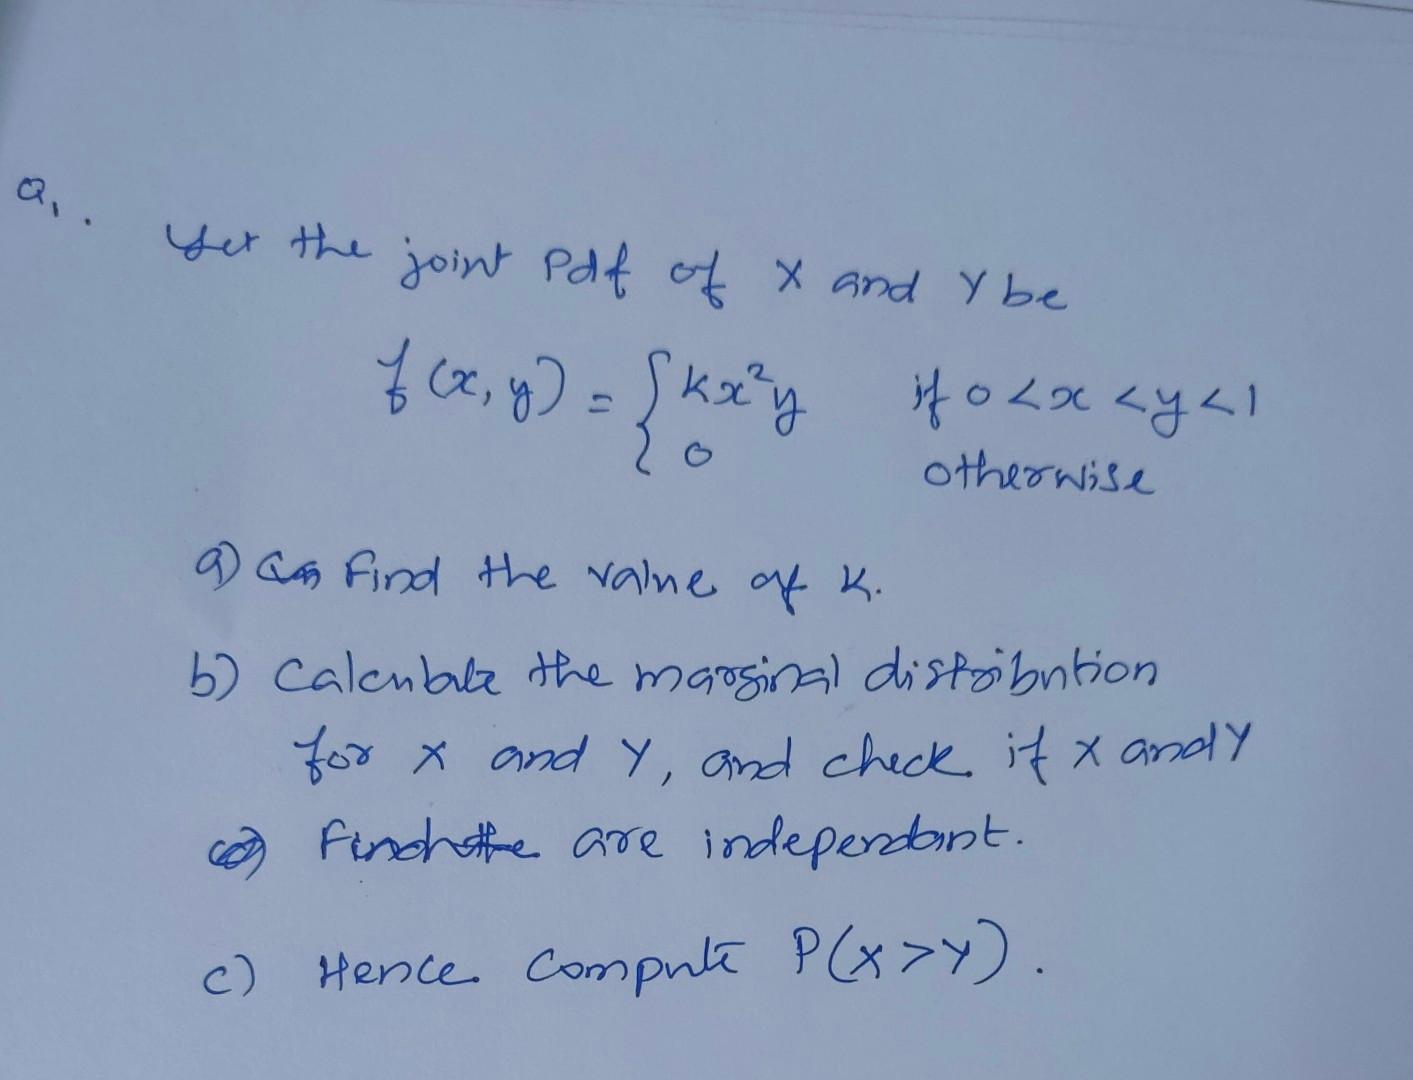 Q1.
Let the joint Pdf of X and Y be
f(x,y) = { kx²y if 0<x<y<1
0 otherwise
a) Find the value of K.
b) Calculate the marginal distribution
for X and Y, and check if X and Y
are independant.
c) Hence compute P(X>Y).